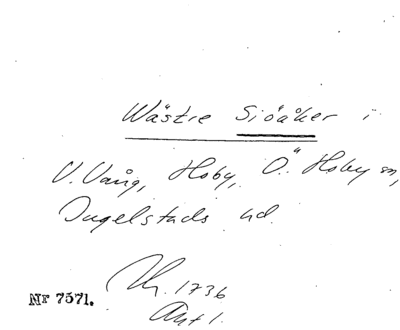 Wästre Siöåker i
V. Vång, Hoby, Ö. Hoby sn,
Ingelstads hd.
1736
Akt 1.
Nr 7571.